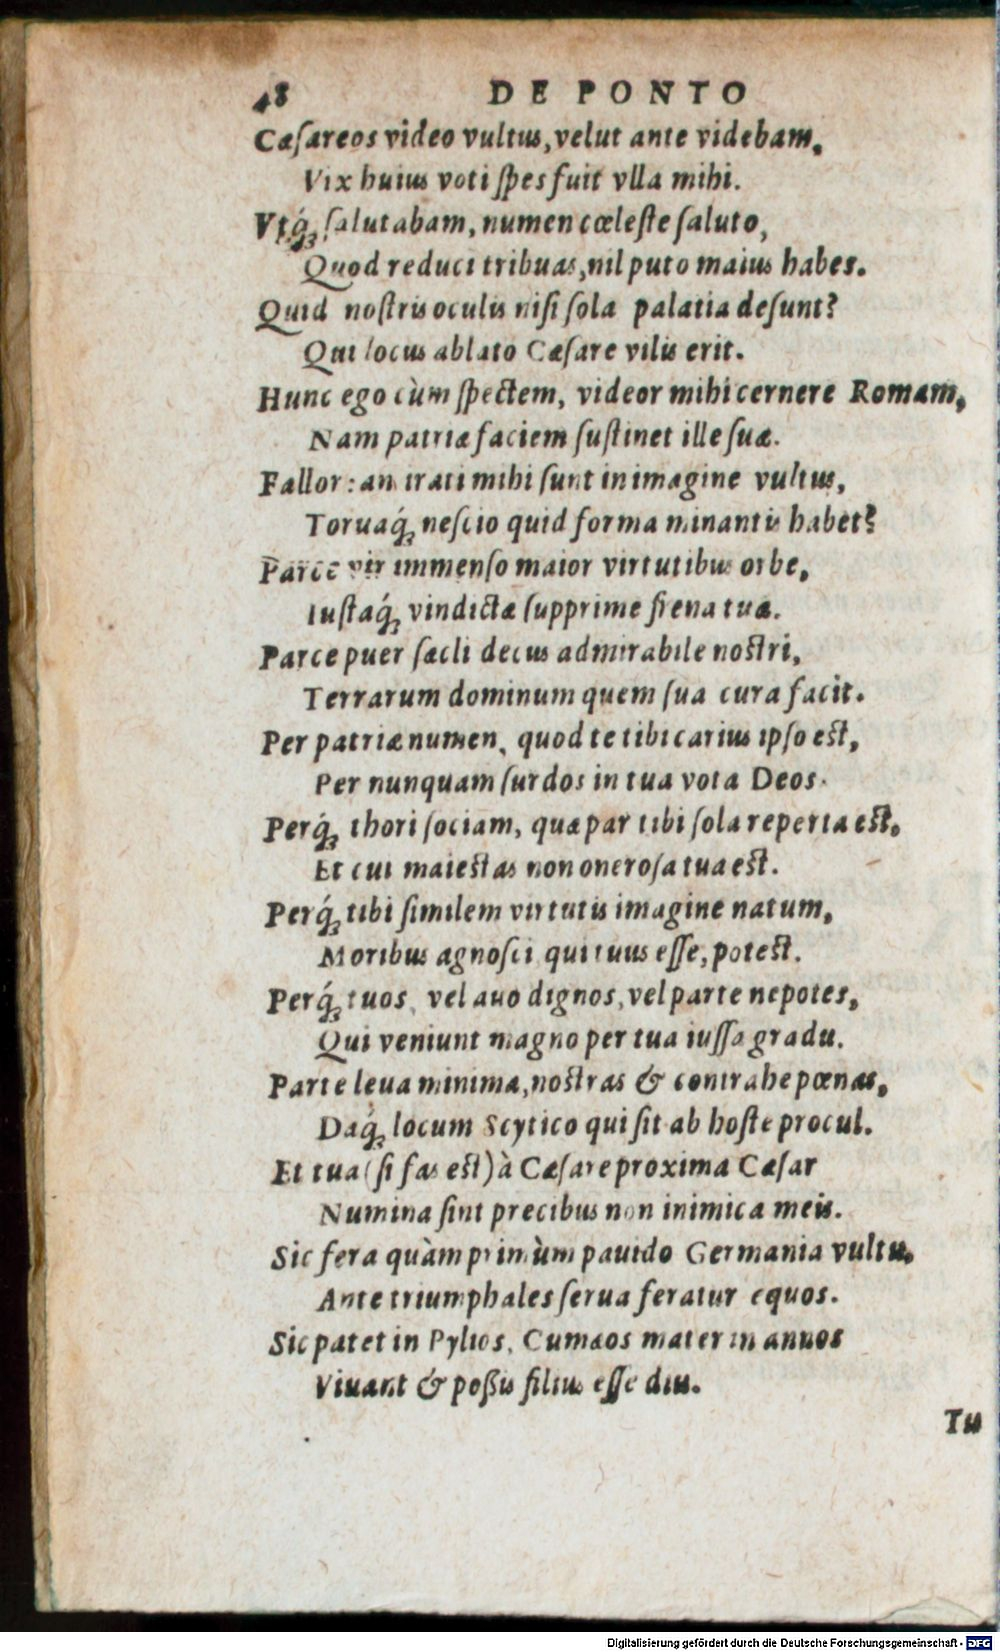 48 DE PONTO
Cæſareos video vultus, velut ante videbam,
Vix huius voti ſpes fuit vlla mihi.
Vtq́; ſalutabam, numen cœleſte ſaluto,
Quod reduci tribuas, nil puto maius habes.
Quid noſtris oculis niſi ſola palatia deſunt?
Qui locus ablato Cæſare vilis erit.
Hunc ego cùm ſpectem, videor mihi cernere Romam,
Nam patriæ faciem ſuſtinet ille ſuæ.
Fallor: an irati mihi ſunt in imagine vultus,
Toruaq́; neſcio quid forma minantis habet?
Parce vir immenſo maior virtutibus orbe,
Iuſtaq́; vindictæ ſupprime frena tuæ.
Parce puer ſæcli decus admirabile noſtri,
Terrarum dominum quem ſua cura facit.
Per patriæ numen, quod te tibi carius ipſo eſt,
Per nunquam ſurdos in tua vota Deos.
Perq́; thori ſociam, quæ par tibi ſola reperta eſt,
Et cui maieſtas non oneroſa tua eſt.
Perq́; tibi ſimilem virtutis imagine natum,
Moribus agnoſci qui tuus eſſe, poteſt.
Perq́; tuos, vel auo dignos, vel parte nepotes,
Qui veniunt magno per tua iuſſa gradu.
Parte leua minima, noſtras & contrahe pœnas,
Daq́; locum Scytico qui ſit ab hoſte procul.
Et tua (ſi fas eſt) à Cæſare proxima Cæſar
Numina ſint precibus non inimica meis.
Sic fera quàm primùm pauido Germania vultu,
Ante triumphales ſerua feratur equos.
Sic patet in Pylios, Cumæos mater in annos
Viuant & poßis filius eſſe diu.
Tu
Digitalisierung gefördert durch die Deutsche Forschungsgemeinschaft - DFG